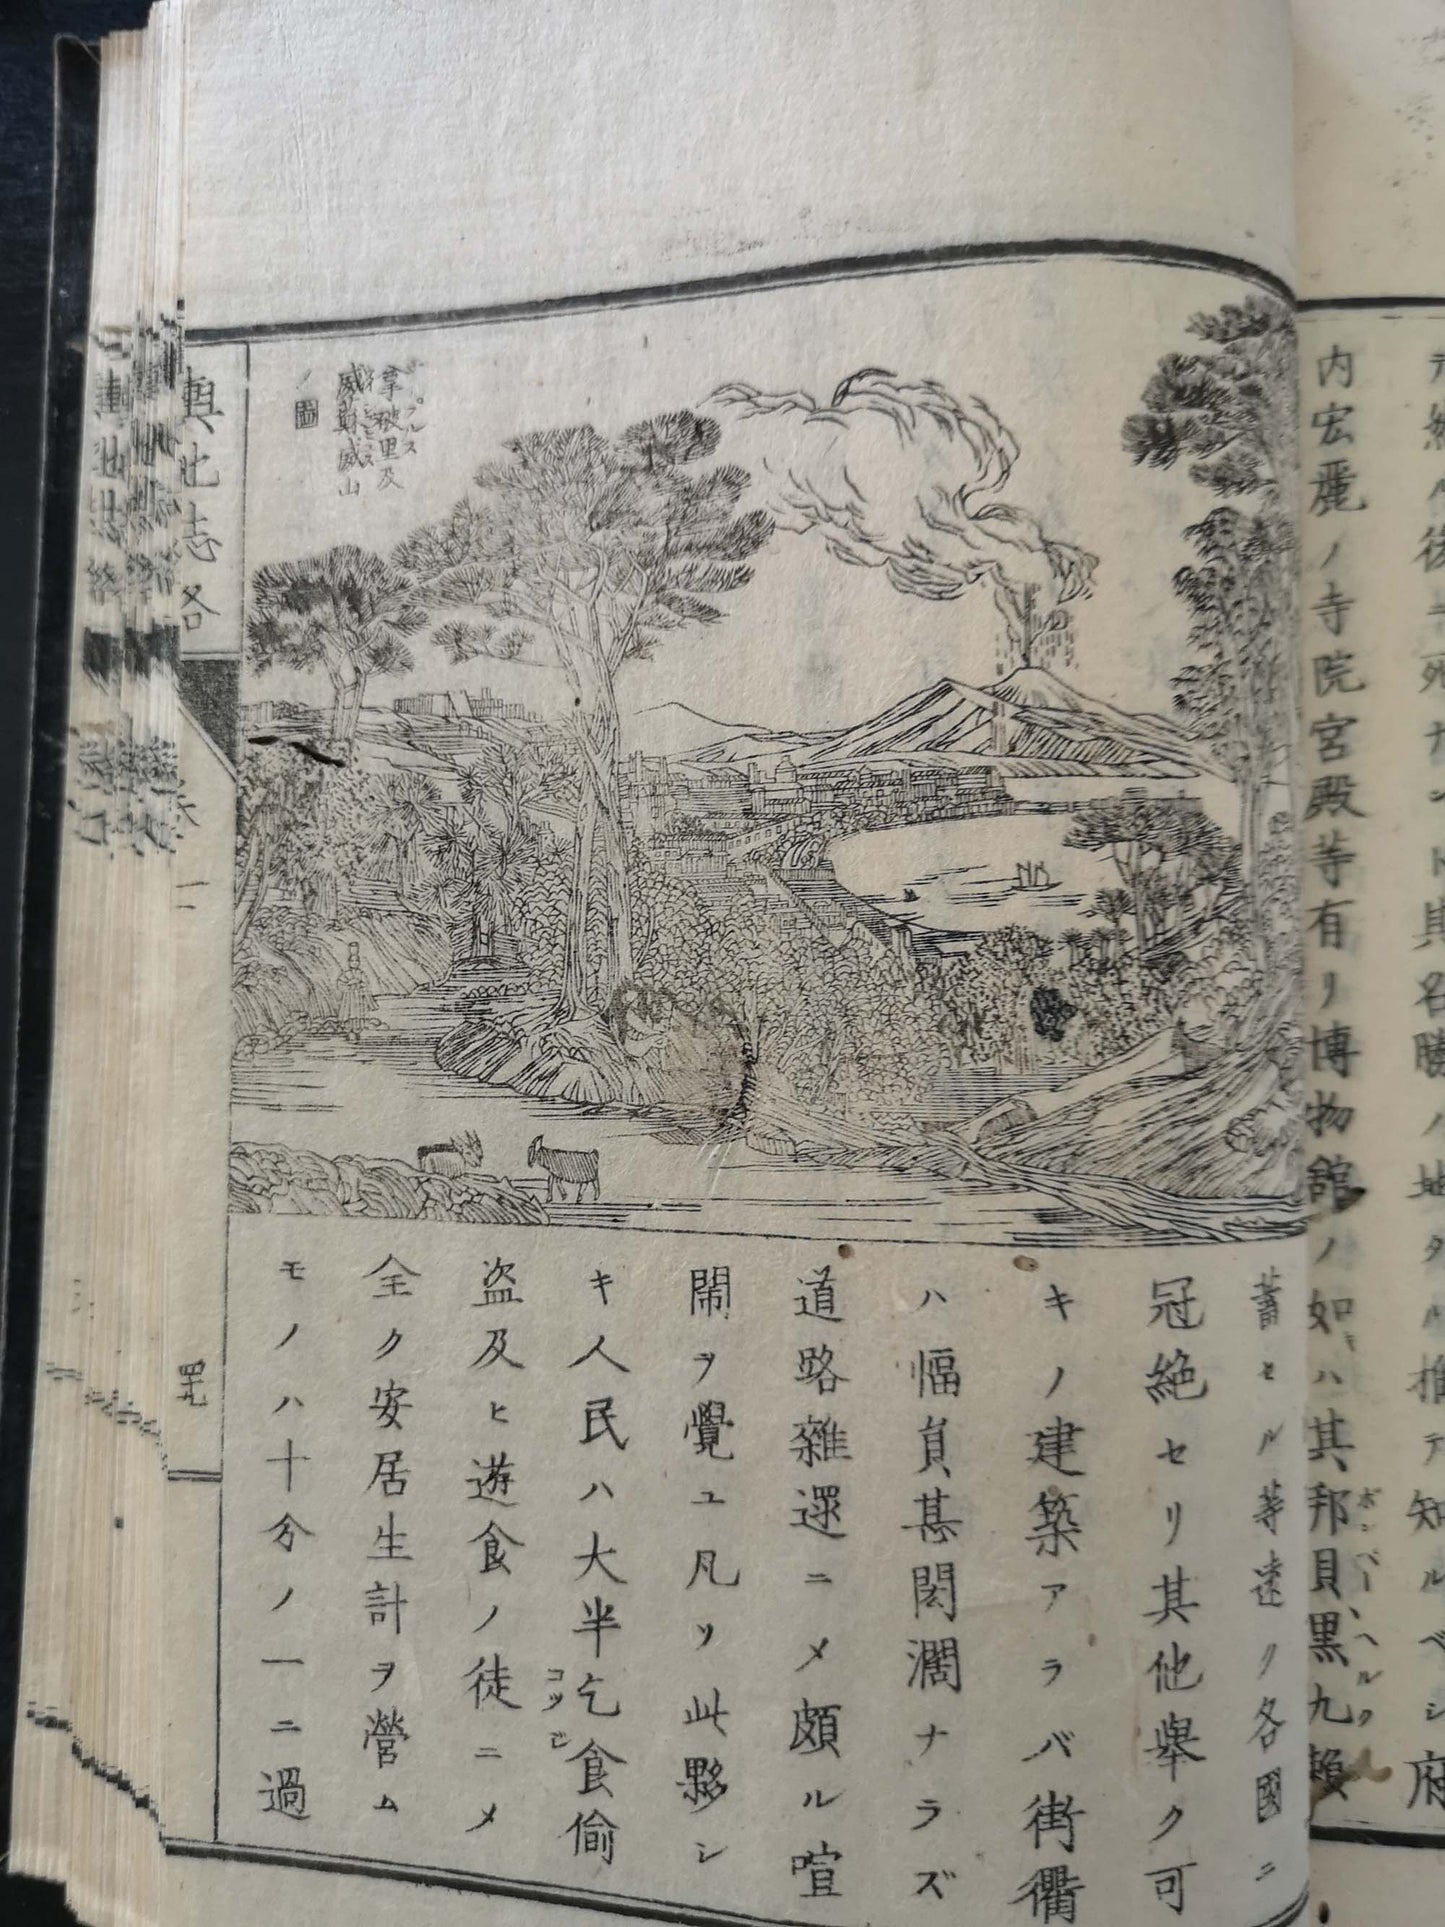 内宏麗ノ寺院宮殿等有リ博物舘ノ如キハ其邦貝黒九頼
ボンペー、ヘルク
蓄セル等遠ク各國ニ
冠絶セリ其他舉ク可
キノ建築アラバ街衢
ハ幅員甚闊濶ナラズ
道路雜遝ニメ頗ル喧
鬧ヲ覺ユ凡ソ此夥シ
キ人民ハ大半乞食偷
コツジ
盗及ヒ遊食ノ徒ニメ
全ク安居生計ヲ營ム
モノハ十分ノ一ニ過
拿破里及
威蘇威山
ノ圖
輿地志畧
卷二
四十九